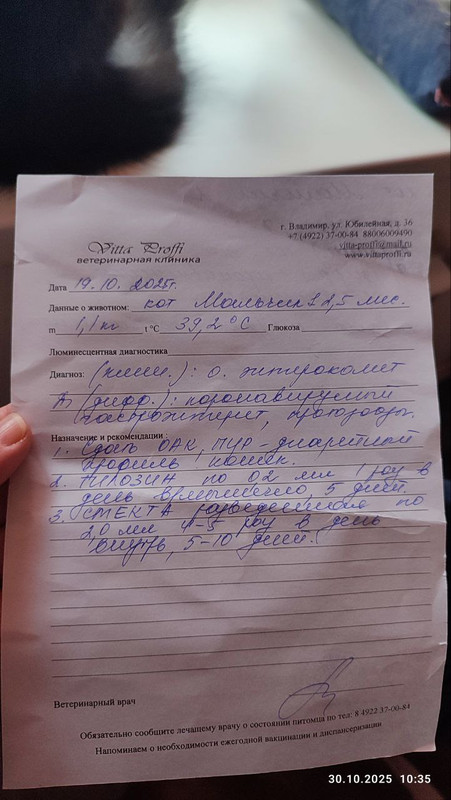 г. Владимир, ул. Юбилейная, д. 36
+7 (4922) 37-00-84 88006009490
vitta-proffi@mail.ru
www.vittaproffi.ru
Vitta Proffi
ветеринарная клиника
Дата 19.10.2025г.
Данные о животном: кот Мальчик 2,5 мес.
m 1,1 кг t °C 39,2°C Глюкоза
Люминесцентная диагностика
Диагноз: (клин.): о. энтероколит
(дифф.): коронавирусный
гастроэнтерит, протозоозы.
Назначение и рекомендации
1. Сдать ОАК, ПЦР-диарейный
профиль кошек.
2. ТИЛОЗИН по 0.2 мл 1 раз в
день в/мышечно, 5 дней.
3. СМЕКТА разведенная по
2,0 мл 4-5 раз в день
внутрь, 5-10 дней.
Ветеринарный врач
Обязательно сообщите лечащему врачу о состоянии питомца по тел: 8 4922 37-00-84
Напоминаем о необходимости ежегодной вакцинации и диспансеризации
30.10.2025 10:35